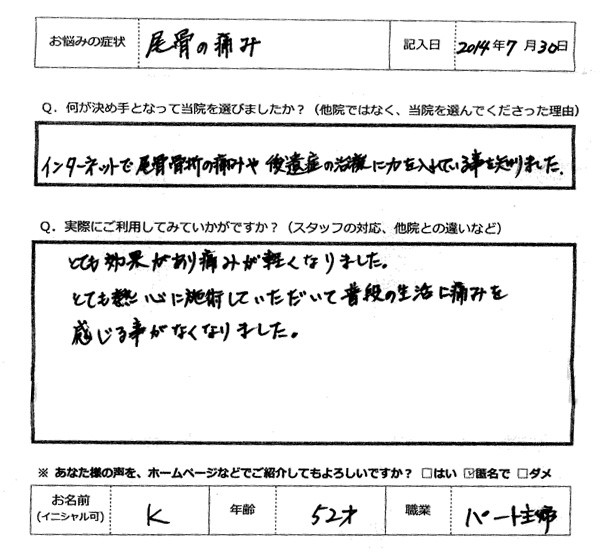 お悩みの症状 尾骨の痛み 記入日 2014年7月30日
Q．何が決め手となって当院を選びましたか？（他院ではなく、当院を選んでくださった理由）
インターネットで尾骨骨折の痛みや後遺症の治療に力を入れている事を知りました．
Q．実際にご利用してみていかがですか？（スタッフの対応、他院との違いなど）
とても効果があり痛みが軽くなりました。
とても熱心に施術していただいて普段の生活に痛みを
感じる事がなくなりました。
※ あなた様の声を、ホームページなどでご紹介してもよろしいですか？ □はい ☑匿名で □ダメ
お名前 K 年齢 52才 職業 パート主婦
(イニシャル可)